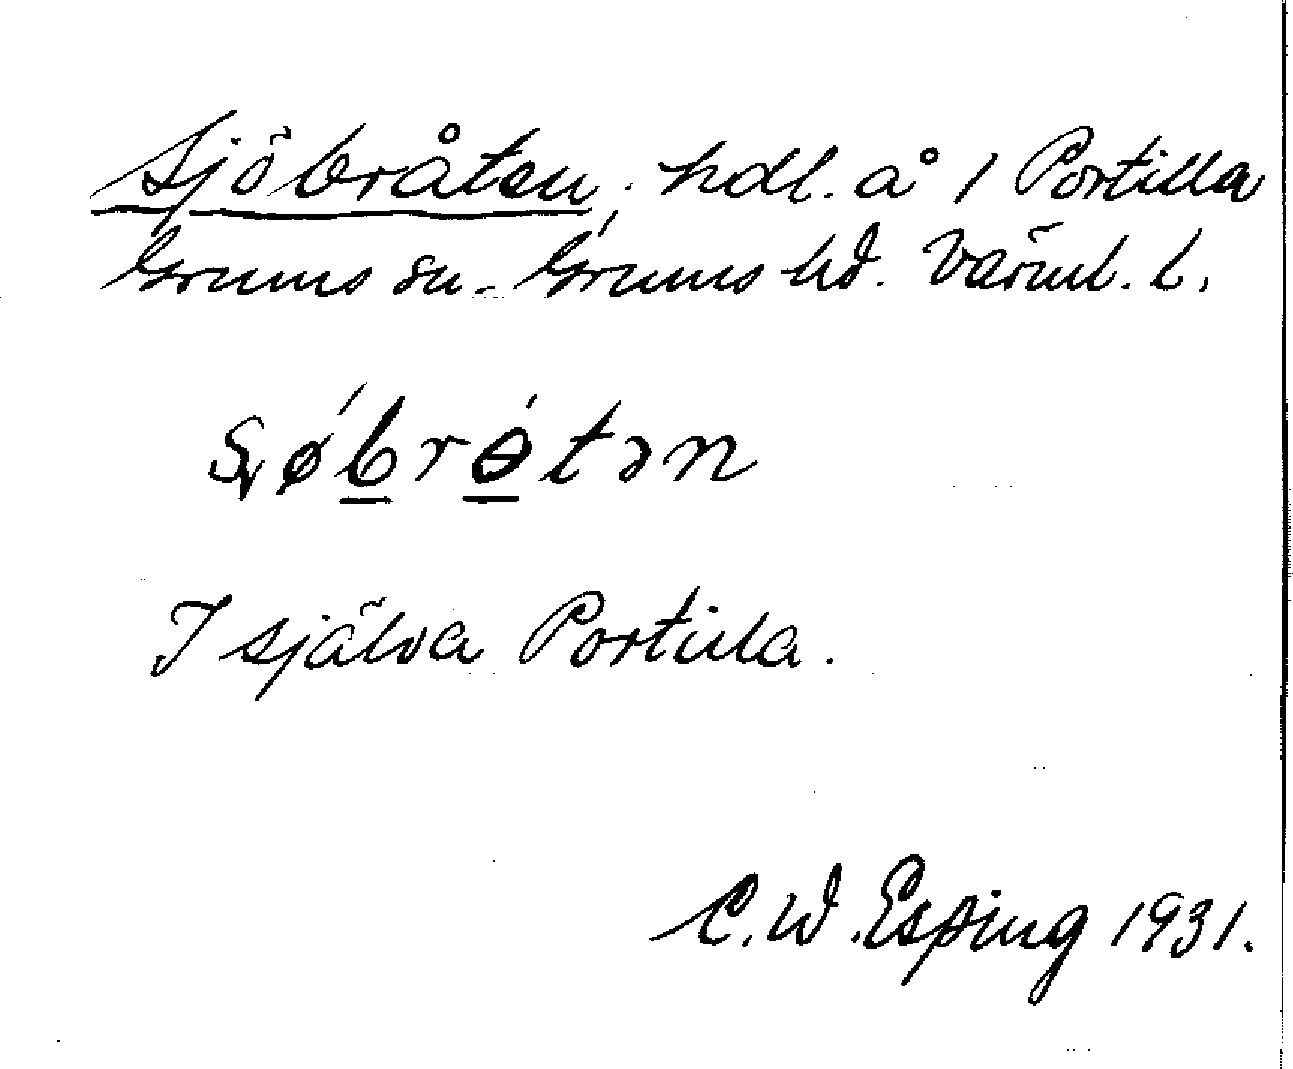 Sjöbråten. hdl. å 1 Portilla
Grums sn. Grums hd. Värml. l.
Sjøbrөtən
I själva Portilla.
C. W. Esping 1931.